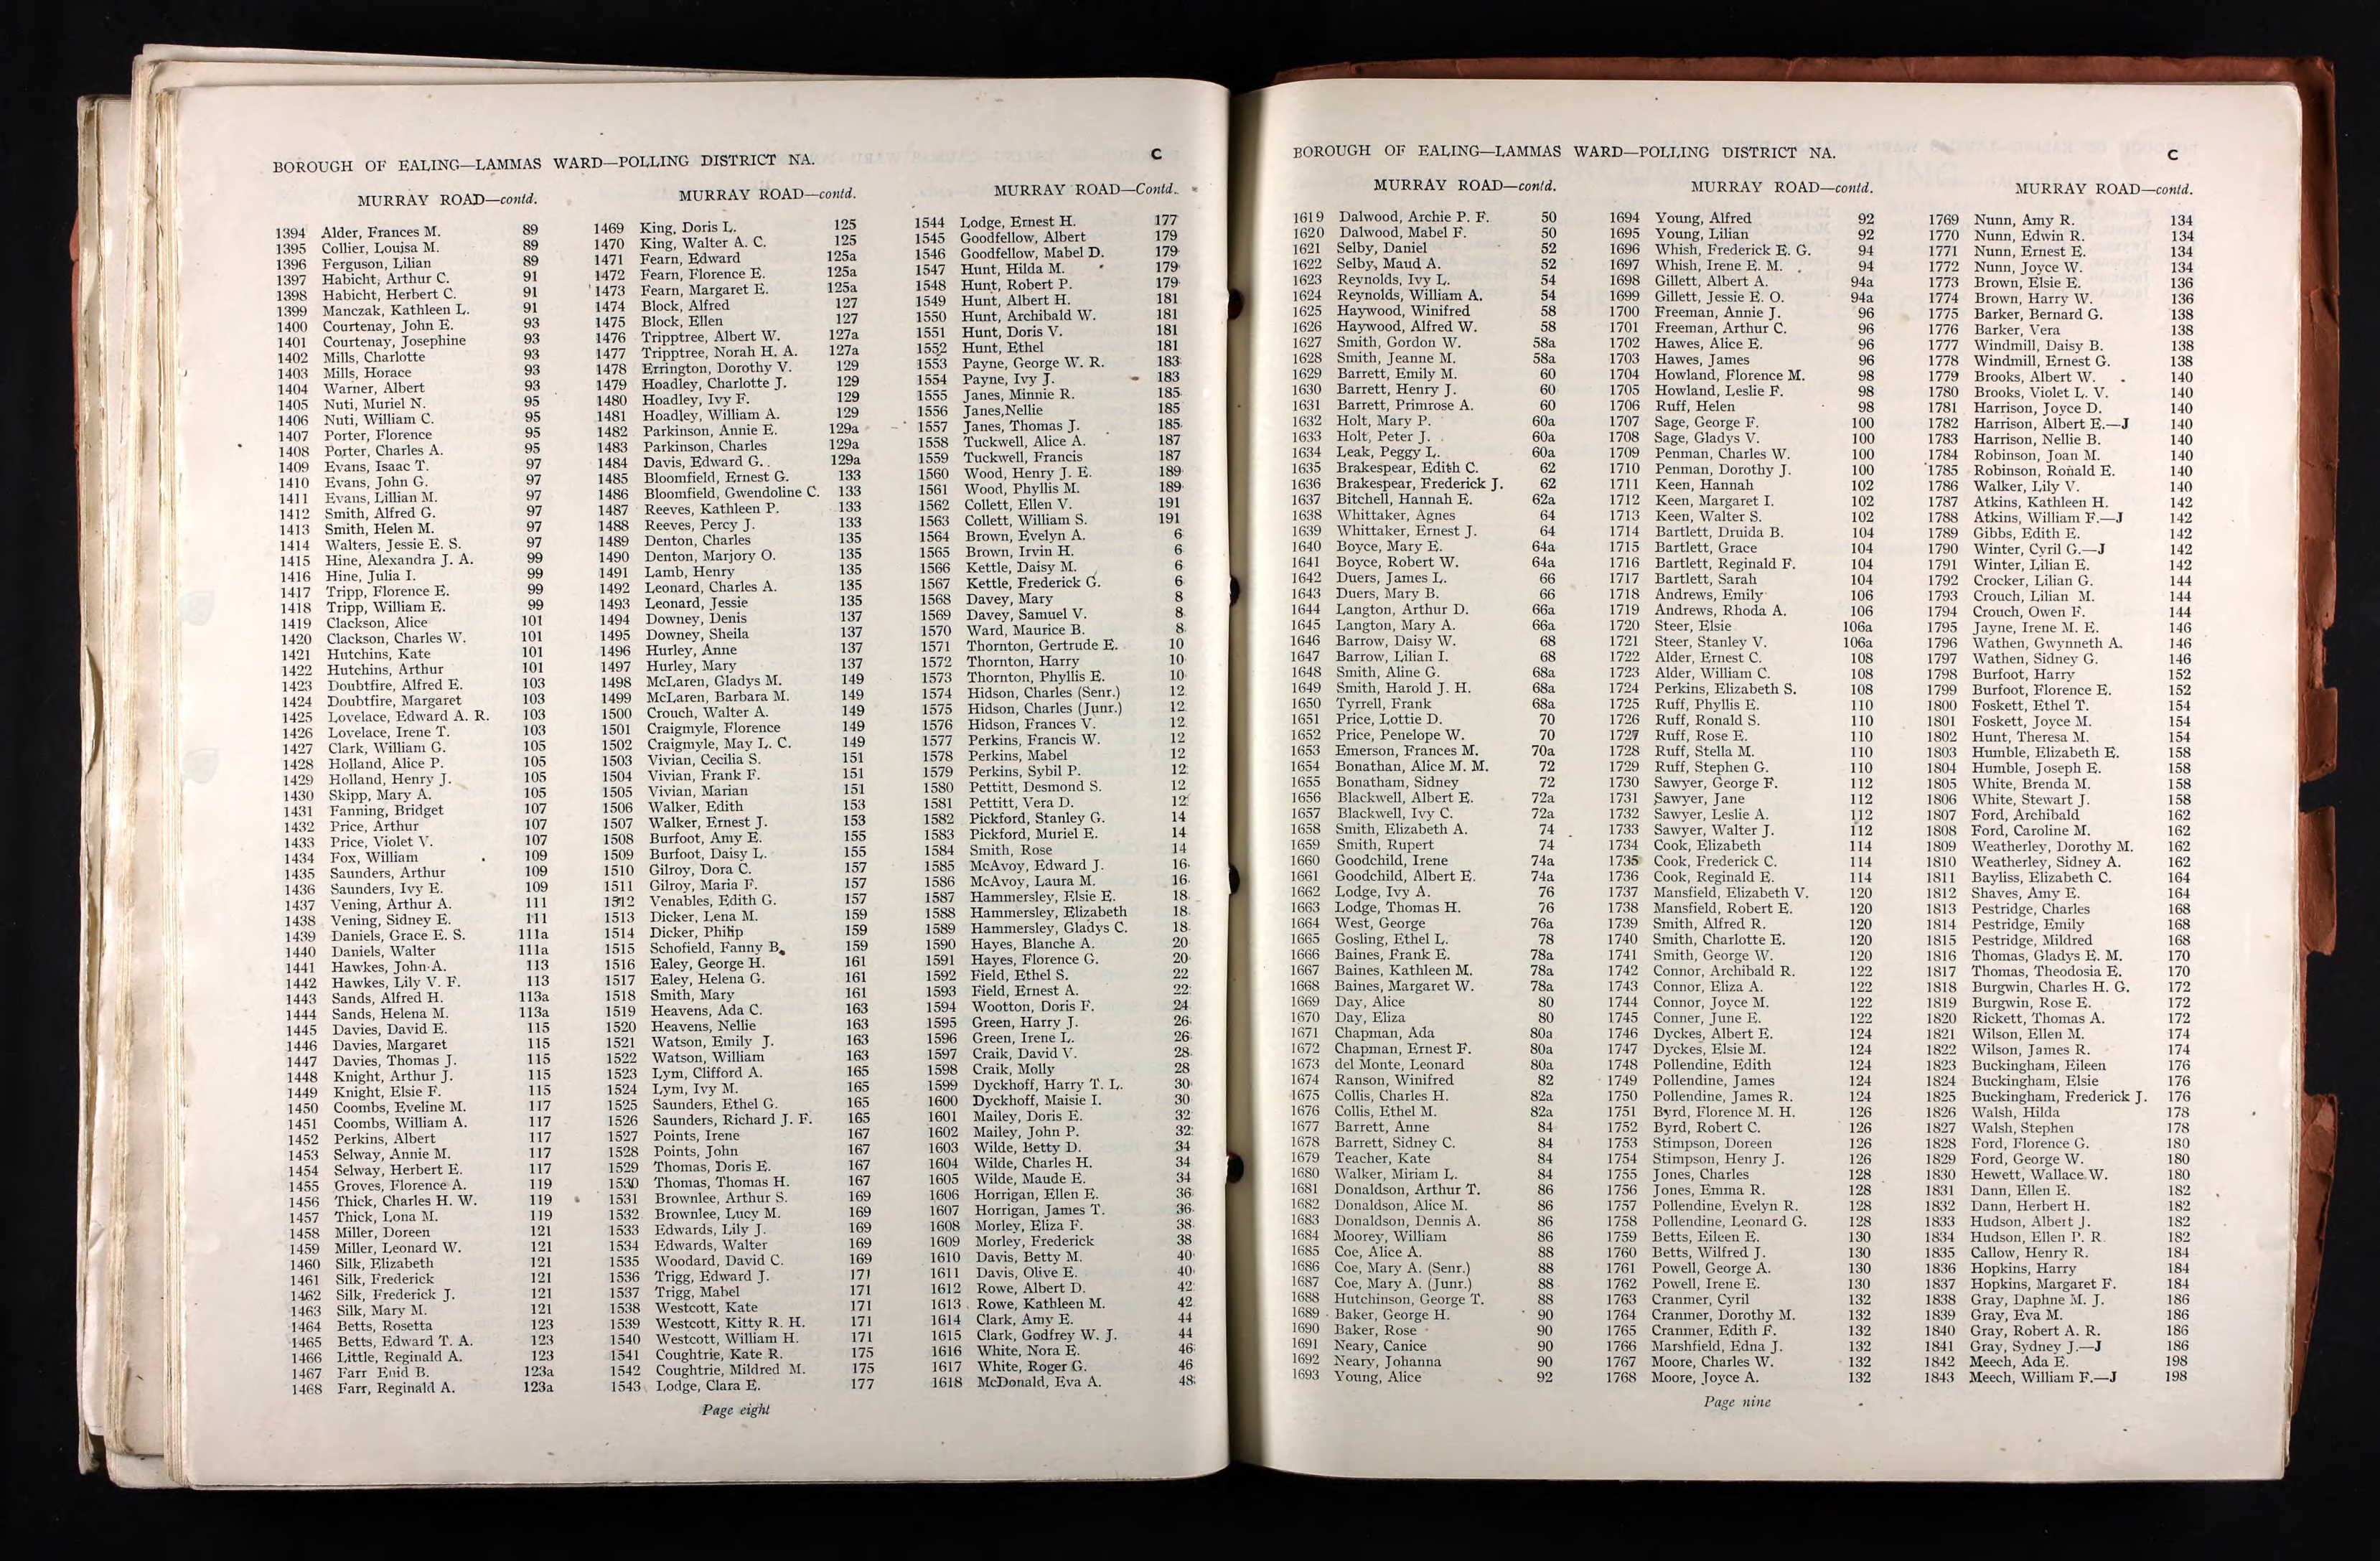 BOROUGH OF EALING—LAMMAS WARD—POLLING DISTRICT NA. C
MURRAY ROAD—contd.
1394 Alder, Frances M. 89
1395 Collier, Louisa M. 89
1396 Ferguson, Lilian 89
1397 Habicht, Arthur C. 91
1398 Habicht, Herbert C. 91
1399 Manczak, Kathleen L. 91
1400 Courtenay, John E. 93
1401 Courtenay, Josephine 93
1402 Mills, Charlotte 93
1403 Mills, Horace 93
1404 Warner, Albert 93
1405 Nuti, Muriel N. 95
1406 Nuti, William C. 95
1407 Porter, Florence 95
1408 Porter, Charles A. 95
1409 Evans, Isaac T. 97
1410 Evans, John G. 97
1411 Evans, Lillian M. 97
1412 Smith, Alfred G. 97
1413 Smith, Helen M. 97
1414 Walters, Jessie E. S. 97
1415 Hine, Alexandra J. A. 99
1416 Hine, Julia I. 99
1417 Tripp, Florence E. 99
1418 Tripp, William E. 99
1419 Clackson, Alice 101
1420 Clackson, Charles W. 101
1421 Hutchins, Kate 101
1422 Hutchins, Arthur 101
1423 Doubtfire, Alfred E. 103
1424 Doubtfire, Margaret 103
1425 Lovelace, Edward A. R. 103
1426 Lovelace, Irene T. 103
1427 Clark, William G. 105
1428 Holland, Alice P. 105
1429 Holland, Henry J. 105
1430 Skipp, Mary A. 105
1431 Fanning, Bridget 107
1432 Price, Arthur 107
1433 Price, Violet V. 107
1434 Fox, William 109
1435 Saunders, Arthur 109
1436 Saunders, Ivy E. 109
1437 Vening, Arthur A. 111
1438 Vening, Sidney E. 111
1439 Daniels, Grace E. S. 111a
1440 Daniels, Walter 111a
1441 Hawkes, John A. 113
1442 Hawkes, Lily V. F. 113
1443 Sands, Alfred H. 113a
1444 Sands, Helena M. 113a
1445 Davies, David E. 115
1446 Davies, Margaret 115
1447 Davies, Thomas J. 115
1448 Knight, Arthur J. 115
1449 Knight, Elsie F. 115
1450 Coombs, Eveline M. 117
1451 Coombs, William A. 117
1452 Perkins, Albert 117
1453 Selway, Annie M. 117
1454 Selway, Herbert E. 117
1455 Groves, Florence A. 119
1456 Thick, Charles H. W. 119
1457 Thick, Lona M. 119
1458 Miller, Doreen 121
1459 Miller, Leonard W. 121
1460 Silk, Elizabeth 121
1461 Silk, Frederick 121
1462 Silk, Frederick J. 121
1463 Silk, Mary M. 121
1464 Betts, Rosetta 123
1465 Betts, Edward T. A. 123
1466 Little, Reginald A. 123
1467 Farr Enid B. 123a
1468 Farr, Reginald A. 123a
MURRAY ROAD—contd.
1469 King, Doris L. 125
1470 King, Walter A. C. 125
1471 Fearn, Edward 125a
1472 Fearn, Florence E. 125a
1473 Fearn, Margaret E. 125a
1474 Block, Alfred 127
1475 Block, Ellen 127
1476 Tripptree, Albert W. 127a
1477 Tripptree, Norah H. A. 127a
1478 Errington, Dorothy V. 129
1479 Hoadley, Charlotte J. 129
1480 Hoadley, Ivy F. 129
1481 Hoadley, William A. 129
1482 Parkinson, Annie E. 129a
1483 Parkinson, Charles 129a
1484 Davis, Edward G. 129a
1485 Bloomfield, Ernest G. 133
1486 Bloomfield, Gwendoline C. 133
1487 Reeves, Kathleen P. 133
1488 Reeves, Percy J. 133
1489 Denton, Charles 135
1490 Denton, Marjory O. 135
1491 Lamb, Henry 135
1492 Leonard, Charles A. 135
1493 Leonard, Jessie 135
1494 Downey, Denis 137
1495 Downey, Sheila 137
1496 Hurley, Anne 137
1497 Hurley, Mary 137
1498 McLaren, Gladys M. 149
1499 McLaren, Barbara M. 149
1500 Crouch, Walter A. 149
1501 Craigmyle, Florence 149
1502 Craigmyle, May L. C. 149
1503 Vivian, Cecilia S. 151
1504 Vivian, Frank F. 151
1505 Vivian, Marian 151
1506 Walker, Edith 153
1507 Walker, Ernest J. 153
1508 Burfoot, Amy E. 155
1509 Burfoot, Daisy L. 155
1510 Gilroy, Dora C. 157
1511 Gilroy, Maria F. 157
1512 Venables, Edith G. 157
1513 Dicker, Lena M. 159
1514 Dicker, Philip 159
1515 Schofield, Fanny B. 159
1516 Ealey, George H. 161
1517 Ealey, Helena G. 161
1518 Smith, Mary 161
1519 Heavens, Ada C. 163
1520 Heavens, Nellie 163
1521 Watson, Emily J. 163
1522 Watson, William 163
1523 Lym, Clifford A. 165
1524 Lym, Ivy M. 165
1525 Saunders, Ethel G. 165
1526 Saunders, Richard J. F. 165
1527 Points, Irene 167
1528 Points, John 167
1529 Thomas, Doris E. 167
1530 Thomas, Thomas H. 167
1531 Brownlee, Arthur S. 169
1532 Brownlee, Lucy M. 169
1533 Edwards, Lily J. 169
1534 Edwards, Walter 169
1535 Woodard, David C. 169
1536 Trigg, Edward J. 171
1537 Trigg, Mabel 171
1538 Westcott, Kate 171
1539 Westcott, Kitty R. H. 171
1540 Westcott, William H. 171
1541 Coughtrie, Kate R. 175
1542 Coughtrie, Mildred M. 175
1543 Lodge, Clara E. 177
MURRAY ROAD—Contd.
1544 Lodge, Ernest H. 177
1545 Goodfellow, Albert 179
1546 Goodfellow, Mabel D. 179
1547 Hunt, Hilda M. 179
1548 Hunt, Robert P. 179
1549 Hunt, Albert H. 181
1550 Hunt, Archibald W. 181
1551 Hunt, Doris V. 181
1552 Hunt, Ethel 181
1553 Payne, George W. R. 183
1554 Payne, Ivy J. 183
1555 Janes, Minnie R. 185
1556 Janes,Nellie 185
1557 Janes, Thomas J. 185
1558 Tuckwell, Alice A. 187
1559 Tuckwell, Francis 187
1560 Wood, Henry J. E. 189
1561 Wood, Phyllis M. 189
1562 Collett, Ellen V. 191
1563 Collett, William S. 191
1564 Brown, Evelyn A. 6
1565 Brown, Irvin H. 6
1566 Kettle, Daisy M. 6
1567 Kettle, Frederick G. 6
1568 Davey, Mary 8
1569 Davey, Samuel V. 8
1570 Ward, Maurice B. 8
1571 Thornton, Gertrude E. 10
1572 Thornton, Harry 10
1573 Thornton, Phyllis E. 10
1574 Hidson, Charles (Senr.) 12
1575 Hidson, Charles (Junr.) 12
1576 Hidson, Frances V. 12
1577 Perkins, Francis W. 12
1578 Perkins, Mabel 12
1579 Perkins, Sybil P. 12
1580 Pettitt, Desmond S. 12
1581 Pettitt, Vera D. 12
1582 Pickford, Stanley G. 14
1583 Pickford, Muriel E. 14
1584 Smith, Rose 14
1585 McAvoy, Edward J. 16
1586 McAvoy, Laura M. 16
1587 Hammersley, Elsie E. 18
1588 Hammersley, Elizabeth 18
1589 Hammersley, Gladys C. 18
1590 Hayes, Blanche A. 20
1591 Hayes, Florence G. 20
1592 Field, Ethel S. 22
1593 Field, Ernest A. 22
1594 Wootton, Doris F. 24
1595 Green, Harry J. 26
1596 Green, Irene L. 26
1597 Craik, David V. 28
1598 Craik, Molly 28
1599 Dyckhoff, Harry T. L. 30
1600 Dyckhoff, Maisie I. 30
1601 Mailey, Doris E. 32
1602 Mailey, John P. 32
1603 Wilde, Betty D. 34
1604 Wilde, Charles H. 34
1605 Wilde, Maude E. 34
1606 Horrigan, Ellen E. 36
1607 Horrigan, James T. 36
1608 Morley, Eliza F. 38
1609 Morley, Frederick 38
1610 Davis, Betty M. 40
1611 Davis, Olive E. 40
1612 Rowe, Albert D. 42
1613 Rowe, Kathleen M. 42
1614 Clark, Amy E. 44
1615 Clark, Godfrey W. J. 44
1616 White, Nora E. 46
1617 White, Roger G. 46
1618 McDonald, Eva A. 48
Page eight
BOROUGH OF EALING—LAMMAS WARD—POLLING DISTRICT NA. C
MURRAY ROAD—contd.
1619 Dalwood, Archie P. F. 50
1620 Dalwood, Mabel F. 50
1621 Selby, Daniel 52
1622 Selby, Maud A. 52
1623 Reynolds, Ivy L. 54
1624 Reynolds, William A. 54
1625 Haywood, Winifred 58
1626 Haywood, Alfred W. 58
1627 Smith, Gordon W. 58a
1628 Smith, Jeanne M. 58a
1629 Barrett, Emily M. 60
1630 Barrett, Henry J. 60
1631 Barrett, Primrose A. 60
1632 Holt, Mary P. 60a
1633 Holt, Peter J. 60a
1634 Leak, Peggy L. 60a
1635 Brakespear, Edith C. 62
1636 Brakespear, Frederick J. 62
1637 Bitchell, Hannah E. 62a
1638 Whittaker, Agnes 64
1639 Whittaker, Ernest J. 64
1640 Boyce, Mary E. 64a
1641 Boyce, Robert W. 64a
1642 Duers, James L. 66
1643 Duers, Mary B. 66
1644 Langton, Arthur D. 66a
1645 Langton, Mary A. 66a
1646 Barrow, Daisy W. 68
1647 Barrow, Lilian I. 68
1648 Smith, Aline G. 68a
1649 Smith, Harold J. H. 68a
1650 Tyrrell, Frank 68a
1651 Price, Lottie D. 70
1652 Price, Penelope W. 70
1653 Emerson, Frances M. 70a
1654 Bonathan, Alice M. M. 72
1655 Bonatham, Sidney 72
1656 Blackwell, Albert E. 72a
1657 Blackwell, Ivy C. 72a
1658 Smith, Elizabeth A. 74
1659 Smith, Rupert 74
1660 Goodchild, Irene 74a
1661 Goodchild, Albert E. 74a
1662 Lodge, Ivy A. 76
1663 Lodge, Thomas H. 76
1664 West, George 76a
1665 Gosling, Ethel L. 78
1666 Baines, Frank E. 78a
1667 Baines, Kathleen M. 78a
1668 Baines, Margaret W. 78a
1669 Day, Alice 80
1670 Day, Eliza 80
1671 Chapman, Ada 80a
1672 Chapman, Ernest F. 80a
1673 del Monte, Leonard 80a
1674 Ranson, Winifred 82
1675 Collis, Charles H. 82a
1676 Collis, Ethel M. 82a
1677 Barrett, Anne 84
1678 Barrett, Sidney C. 84
1679 Teacher, Kate 84
1680 Walker, Miriam L. 84
1681 Donaldson, Arthur T. 86
1682 Donaldson, Alice M. 86
1683 Donaldson, Dennis A. 86
1684 Moorey, William 86
1685 Coe, Alice A. 88
1686 Coe, Mary A. (Senr.) 88
1687 Coe, Mary A. (Junr.) 88
1688 Hutchinson, George T. 88
1689 Baker, George H. 90
1690 Baker, Rose 90
1691 Neary, Canice 90
1692 Neary, Johanna 90
1693 Young, Alice 92
MURRAY ROAD—contd.
1694 Young, Alfred 92
1695 Young, Lilian 92
1696 Whish, Frederick E. G. 94
1697 Whish, Irene E. M. 94
1698 Gillett, Albert A. 94a
1699 Gillett, Jessie E. O. 94a
1700 Freeman, Annie J. 96
1701 Freeman, Arthur C. 96
1702 Hawes, Alice E. 96
1703 Hawes, James 96
1704 Howland, Florence M. 98
1705 Howland, Leslie F. 98
1706 Ruff, Helen 98
1707 Sage, George F. 100
1708 Sage, Gladys V. 100
1709 Penman, Charles W. 100
1710 Penman, Dorothy J. 100
1711 Keen, Hannah 102
1712 Keen, Margaret I. 102
1713 Keen, Walter S. 102
1714 Bartlett, Druida B. 104
1715 Bartlett, Grace 104
1716 Bartlett, Reginald F. 104
1717 Bartlett, Sarah 104
1718 Andrews, Emily 106
1719 Andrews, Rhoda A. 106
1720 Steer, Elsie 106a
1721 Steer, Stanley V. 106a
1722 Alder, Ernest C. 108
1723 Alder, William C. 108
1724 Perkins, Elizabeth S. 108
1725 Ruff, Phyllis E. 110
1726 Ruff, Ronald S. 110
1727 Ruff, Rose E. 110
1728 Ruff, Stella M. 110
1729 Ruff, Stephen G. 110
1730 Sawyer, George F. 112
1731 Sawyer, Jane 112
1732 Sawyer, Leslie A. 112
1733 Sawyer, Walter J. 112
1734 Cook, Elizabeth 114
1735 Cook, Frederick C. 114
1736 Cook, Reginald E. 114
1737 Mansfield, Elizabeth V. 120
1738 Mansfield, Robert E. 120
1739 Smith, Alfred R. 120
1740 Smith, Charlotte E. 120
1741 Smith, George W. 120
1742 Connor, Archibald R. 122
1743 Connor, Eliza A. 122
1744 Connor, Joyce M. 122
1745 Conner, June E. 122
1746 Dyckes, Albert E. 124
1747 Dyckes, Elsie M. 124
1748 Pollendine, Edith 124
1749 Pollendine, James 124
1750 Pollendine, James R. 124
1751 Byrd, Florence M. H. 126
1752 Byrd, Robert C. 126
1753 Stimpson, Doreen 126
1754 Stimpson, Henry J. 126
1755 Jones, Charles 128
1756 Jones, Emma R. 128
1757 Pollendine, Evelyn R. 128
1758 Pollendine, Leonard G. 128
1759 Betts, Eileen E. 130
1760 Betts, Wilfred J. 130
1761 Powell, George A. 130
1762 Powell, Irene E. 130
1763 Cranmer, Cyril 132
1764 Cranmer, Dorothy M. 132
1765 Cranmer, Edith F. 132
1766 Marshfield, Edna J. 132
1767 Moore, Charles W. 132
1768 Moore, Joyce A. 132
MURRAY ROAD—contd.
1769 Nunn, Amy R. 134
1770 Nunn, Edwin R. 134
1771 Nunn, Ernest E. 134
1772 Nunn, Joyce W. 134
1773 Brown, Elsie E. 136
1774 Brown, Harry W. 136
1775 Barker, Bernard G. 138
1776 Barker, Vera 138
1777 Windmill, Daisy B. 138
1778 Windmill, Ernest G. 138
1779 Brooks, Albert W. 140
1780 Brooks, Violet L. V. 140
1781 Harrison, Joyce D. 140
1782 Harrison, Albert E.—J 140
1783 Harrison, Nellie B. 140
1784 Robinson, Joan M. 140
1785 Robinson, Ronald E. 140
1786 Walker, Lily V. 140
1787 Atkins, Kathleen H. 142
1788 Atkins, William F.—J 142
1789 Gibbs, Edith E. 142
1790 Winter, Cyril G.—J 142
1791 Winter, Lilian E. 142
1792 Crocker, Lilian G. 144
1793 Crouch, Lilian M. 144
1794 Crouch, Owen F. 144
1795 Jayne, Irene M. E. 146
1796 Wathen, Gwynneth A. 146
1797 Wathen, Sidney G. 146
1798 Burfoot, Harry 152
1799 Burfoot, Florence E. 152
1800 Foskett, Ethel T. 154
1801 Foskett, Joyce M. 154
1802 Hunt, Theresa M. 154
1803 Humble, Elizabeth E. 158
1804 Humble, Joseph E. 158
1805 White, Brenda M. 158
1806 White, Stewart J. 158
1807 Ford, Archibald 162
1808 Ford, Caroline M. 162
1809 Weatherley, Dorothy M. 162
1810 Weatherley, Sidney A. 162
1811 Bayliss, Elizabeth C. 164
1812 Shaves, Amy E. 164
1813 Pestridge, Charles 168
1814 Pestridge, Emily 168
1815 Pestridge, Mildred 168
1816 Thomas, Gladys E. M. 170
1817 Thomas, Theodosia E. 170
1818 Burgwin, Charles H. G. 172
1819 Burgwin, Rose E. 172
1820 Rickett, Thomas A. 172
1821 Wilson, Ellen M. 174
1822 Wilson, James R. 174
1823 Buckingham, Eileen 176
1824 Buckingham, Elsie 176
1825 Buckingham, Frederick J. 176
1826 Walsh, Hilda 178
1827 Walsh, Stephen 178
1828 Ford, Florence G. 180
1829 Ford, George W. 180
1830 Hewett, Wallace W. 180
1831 Dann, Ellen E. 182
1832 Dann, Herbert H. 182
1833 Hudson, Albert J. 182
1834 Hudson, Ellen P. R. 182
1835 Callow, Henry R. 184
1836 Hopkins, Harry 184
1837 Hopkins, Margaret F. 184
1838 Gray, Daphne M. J. 186
1839 Gray, Eva M. 186
1840 Gray, Robert A. R. 186
1841 Gray, Sydney J.—J 186
1842 Meech, Ada E. 198
1843 Meech, William F.—J 198
Page nine